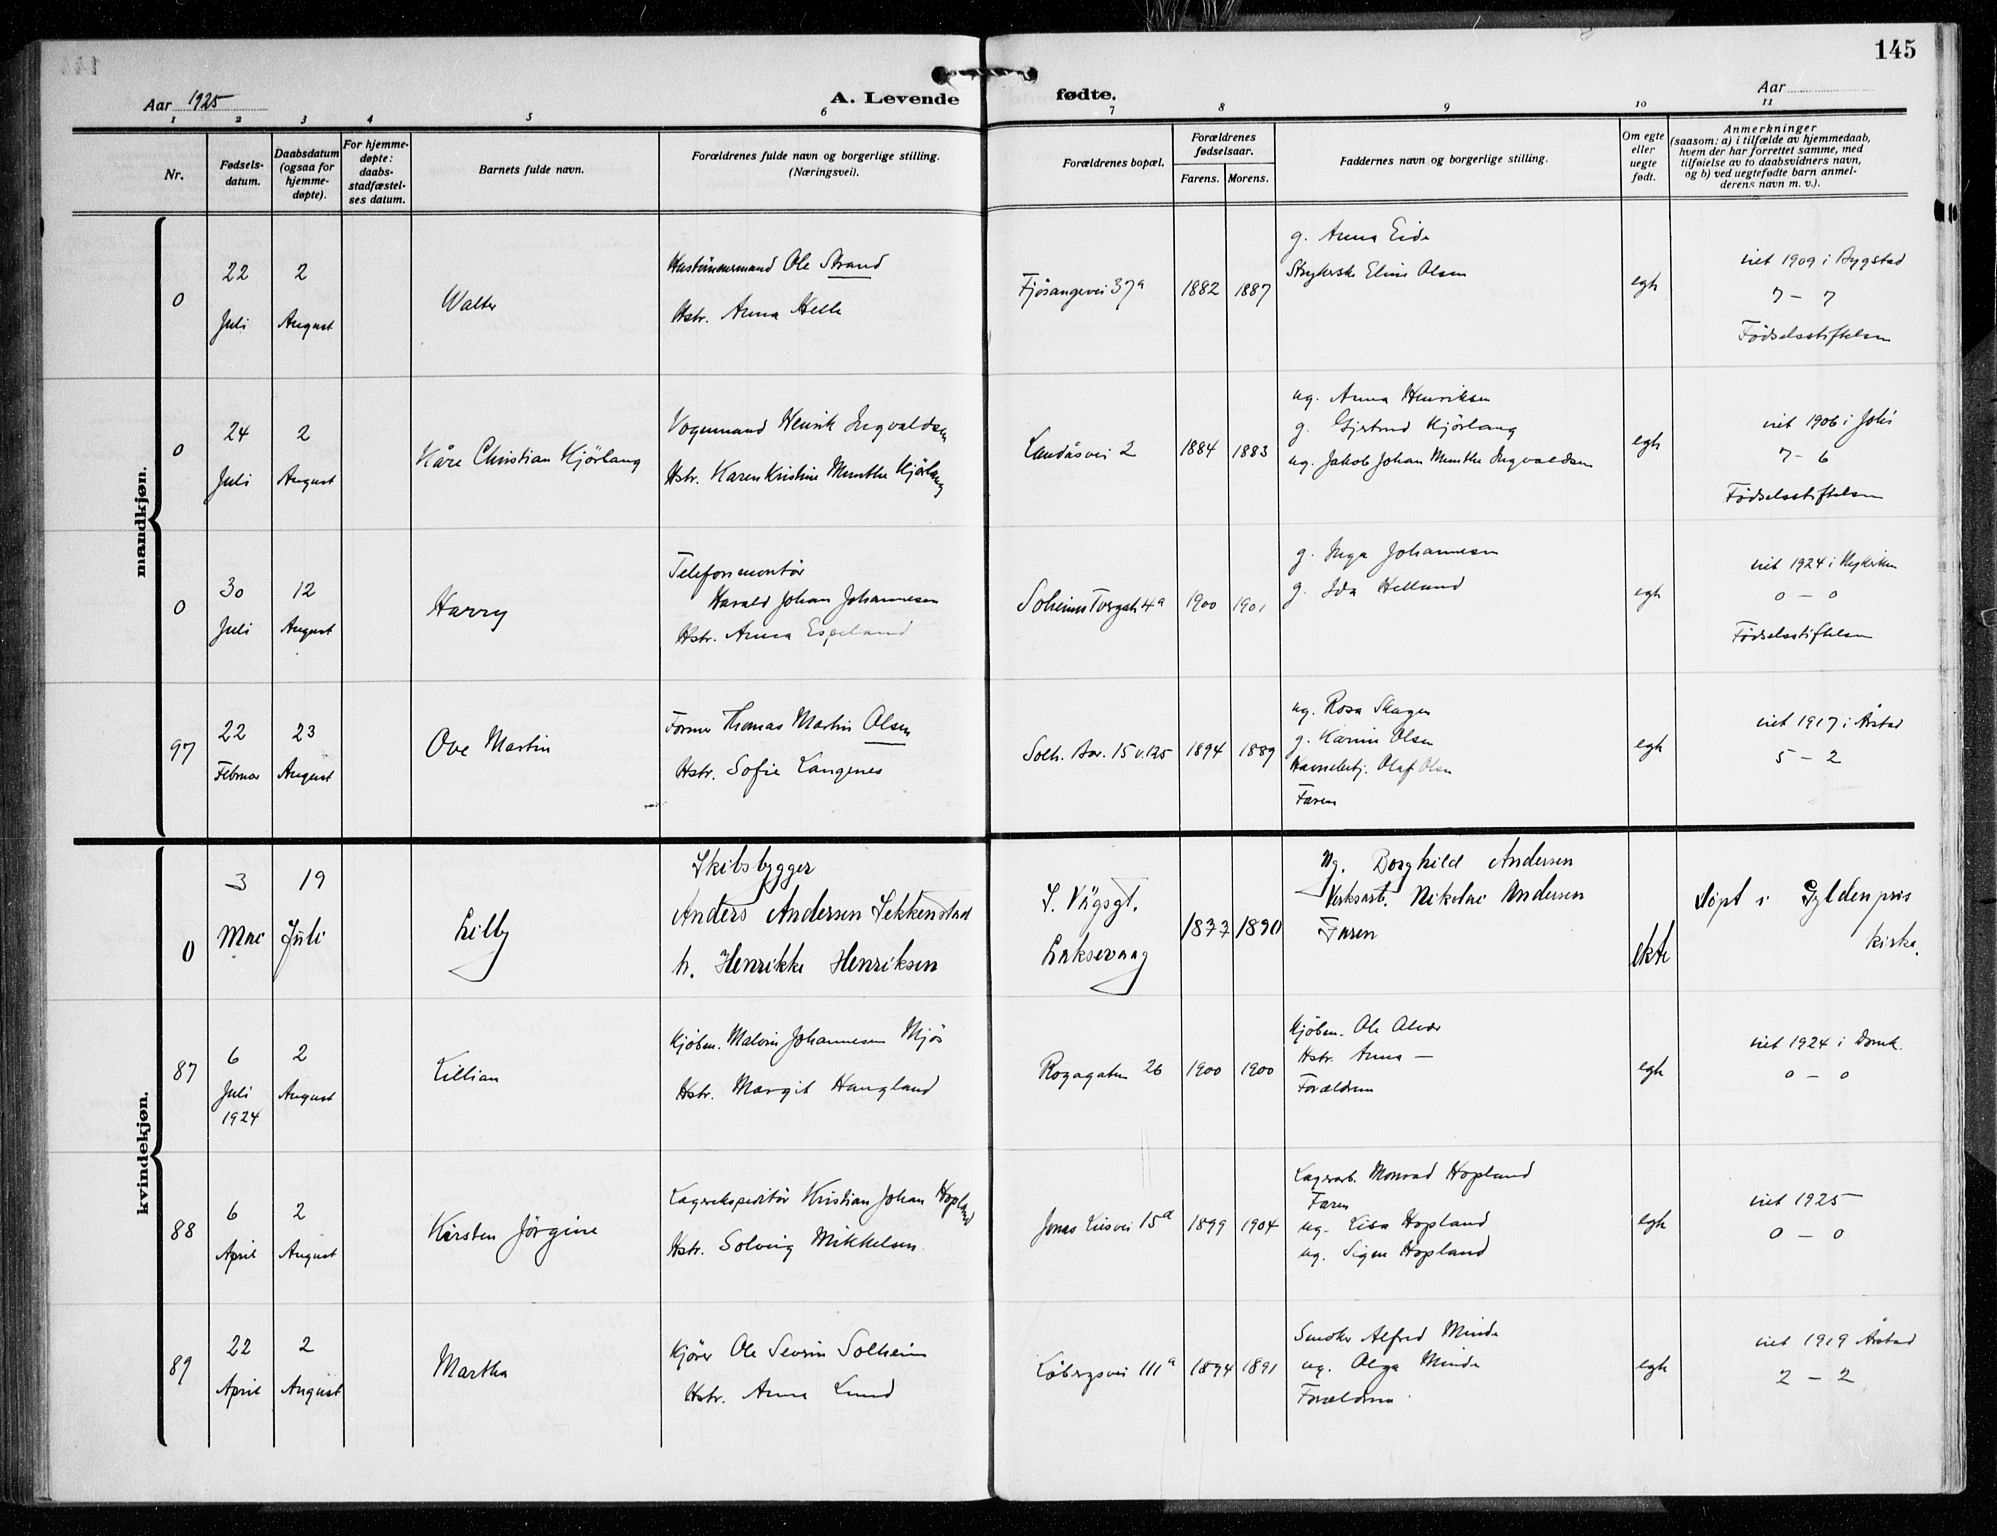 145
Aar 1925
A. Levende fødte.
Aar
1 2 3 4 5 6 7 8 9 10 11
Nr.
Fødsels-
datum.
Daabsdatum
(ogsaa for
hjemme-
døpte).
For hjemme-
døpte:
daabs-
stadfæstel-
ses datum.
Barnets fulde navn.
Forældrenes fulde navn og borgerlige stilling.
(Næringsvei).
Forældrenes bopæl.
Forældrenes
fødselsaar.
Farens. Morens.
Faddernes navn og borgerlige stilling.
Om egte
eller
uegte
født.
Anmerkninger
(saasom: a) i tilfælde av hjemmedaab,
hvem der har forrettet samme, med
tilføielse av to daabsvidners navn,
og b) ved uegtefødte barn anmel-
derens navn m. v.).
mandkjøn.
0
22
Juli
2
August
Walter
Ole Strand
Hstr. Anna Helle
Fjøsangervei 37a
1882
1887
g. Anna Eide
Strykerske Eline Olsen
egte
viet 1909 i Bygstad
7 - 7
Fødselsstiftelsen
0
24
Juli
2
August
Kåre Christian Kjørlaug
Vognmand Henrik Ingvaldsen
Hstr. Karen Kristine Munthe Kjørlaug
Landåsvei 2
1884
1883
ug. Anna Henriksen
g. Gjertrud Kjørlaug
ug. Jakob Johan Munthe Ingvaldsen
egte
viet 1906 i Joh's
7 - 6
Fødselsstiftelsen
0
30
Juli
12
August
Harry
Telefonmontør
Harald Johan Johannesen
Hstr. Anna Espeland
Solheims Tvergate 4a
1900
1901
g. Inga Johannesen
g. Ida Helland
egte
viet 1924 i Nykirken
0 - 0
Fødselsstiftelsen
97
22
Februar
23
August
Ove Martin
Former Thomas Martin Olsen
Hstr. Sofie Langenes
Solh. Bar. 15 v. 125
1894
1889
ug. Rosa Skagen
g. Karin Olsen
Havnebetj. Olaf Olsen
Faren
egte
viet 1917 i Årstad
5 - 2
kvindekjøn.
0
3
Mai
19
Juli
Lilly
Skibsbygger
Anders Andersen Sekkenstad
h. Henrikke Henriksen
I. Vågsgt.
Laksevaag
1877
1890
Ug. Borghild Andersen
Verksarb. Nikolai Andersen
Faren
ekte
Døpt i Gyldenpris
kirke.
87
6
Juli
1924
2
August
Lillian
Kjøbm. Malvin Johannesen Mjøs
Hstr. Margit Haugland
Rogagaten 26
1900
1900
Kjøbm. Ole Alvær
Hstr. Anna —
Forældrene
egte
viet 1924 i Domk.
0 - 0
88
6
April
2
August
Kirsten Jørgine
Lagerekspeditør Kristian Johan Hopland
Hstr. Solveig Mikkelsen
Jonas Liesvei 15a
1899
1904
Lagerarb. Monrad Hopland
Faren
ug. Lisa Hopland
ug. Signe Hopland
egte
viet 1925
0 - 0
89
22
April
2
August
Martha
Kjører Ole Severin Solheim
Hstr. Anna Lund
Løbergsvei 111a
1894
1891
Snekker Alfred Minde
ug. Olga Minde
Forældrene.
egte
viet 1919 Årstad
2 - 2